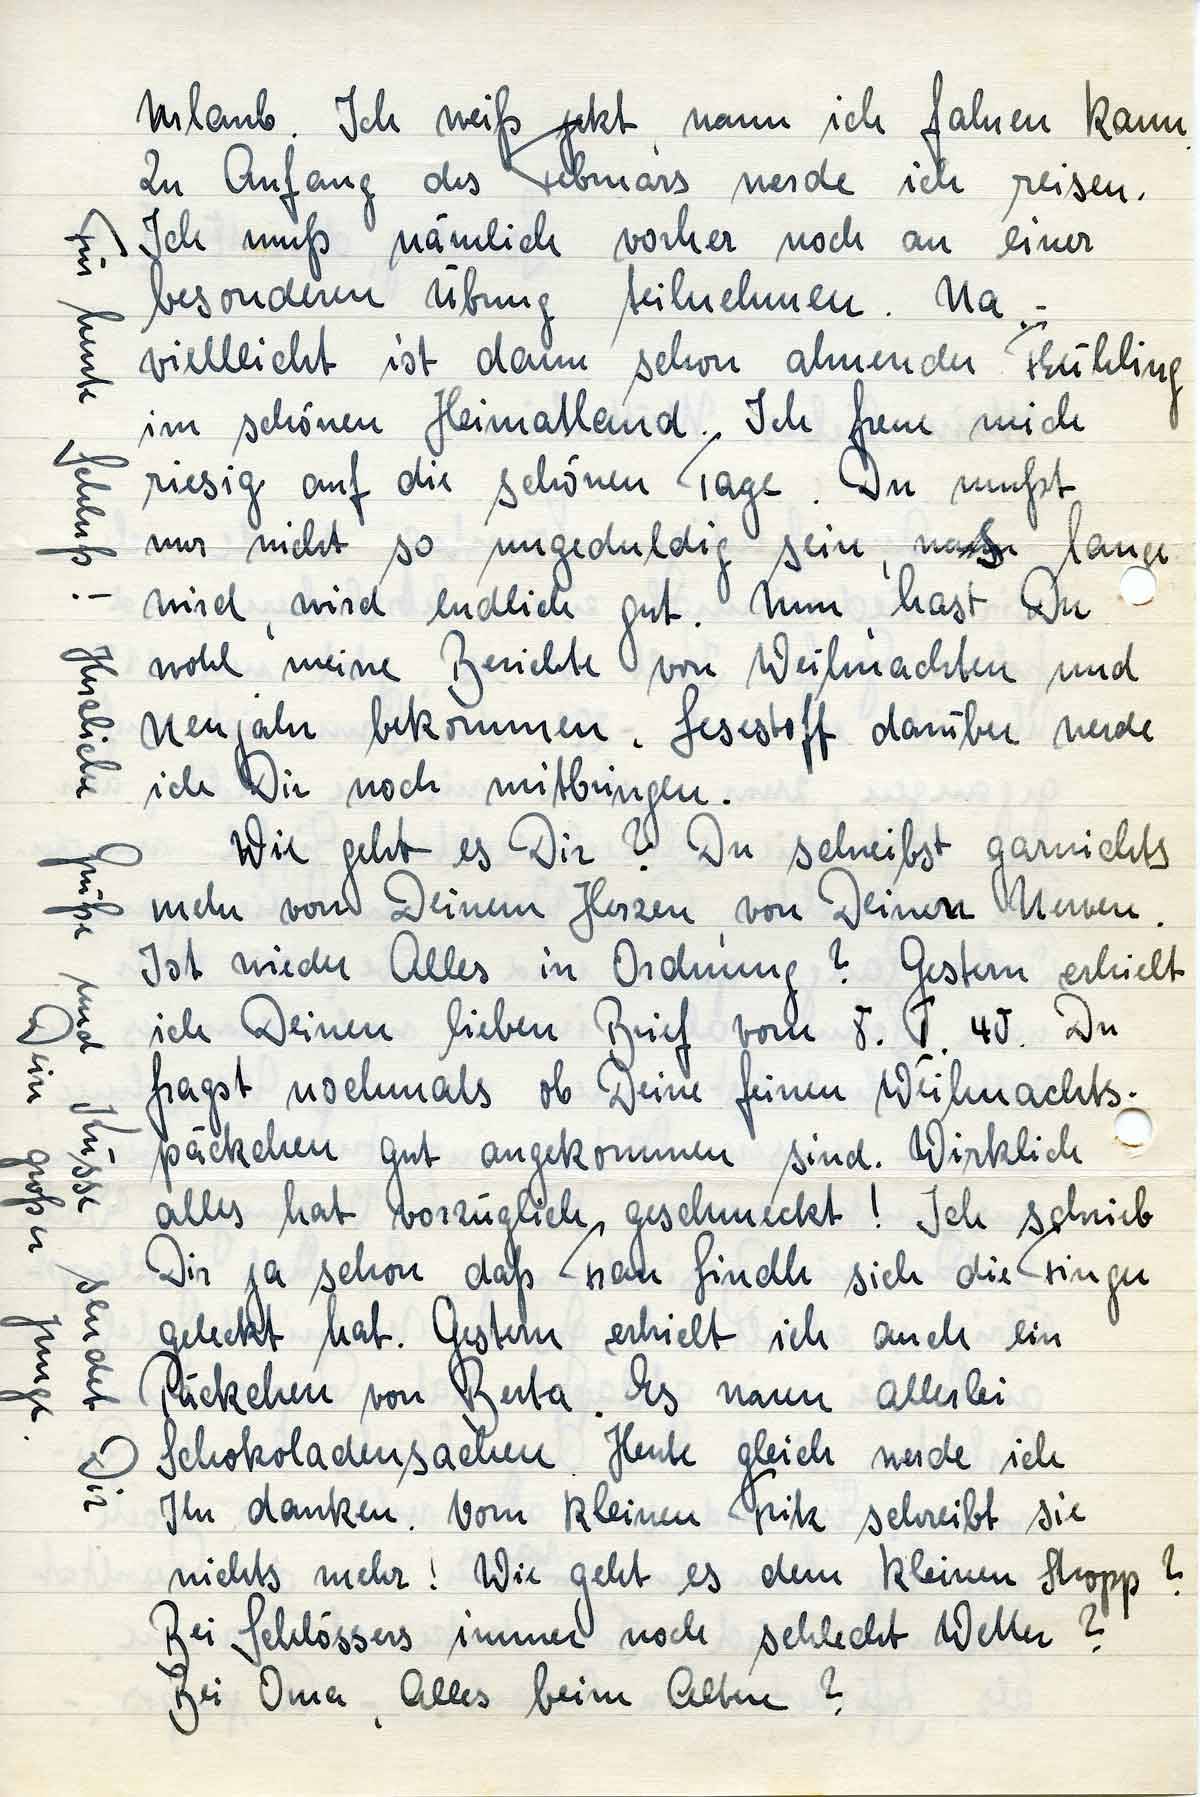 Urlaub. Ich weiß jetzt, wann ich fahren kann.
Zu Anfang des Februars werde ich reisen.
Ich muß nämlich vorher noch an einer
besonderen Übung teilnehmen. Na.-
vielleicht ist dann schon ahnender Frühling
im schönen Heimatland. Ich freue mich
riesig auf die schönen Tage. Du mußt
nur nicht so ungeduldig sein, was lange
wird, wird endlich gut. Nun, hast Du
wohl meine Berichte von Weihnachten und
Neujahr bekommen. Lesestoff darüber werde
ich Dir noch mitbringen.
Wie geht es Dir? Du schreibst garnichts
mehr von Deinem Herzen, von Deinen Nerven.
Ist wieder Alles in Ordnung? Gestern erhielt
ich Deinen lieben Brief vom 8. I. 45. Du
fragst nochmals ob Deine feinen Weihnachts-
päckchen gut angekommen sind. Wirklich
alles hat vorzüglich geschmeckt! Ich schrieb
Dir ja schon daß Frau Lindh sich die Finger
geleckt hat. Gestern erhielt ich auch ein
Päckchen von Berta. Es waren allerlei
Schokoladensachen. Heute gleich werde ich
Ihr danken. Vom kleinen Frik schreibt sie
nichts mehr! Wie geht es dem kleinen Stropp?
Bei Schlössers immer noch schlecht Wetter?
Bei Oma, Alles beim Alten?
Für heute Schluß!- Herzliche Grüße und Küsse sendet Dir
Dein großer Junge.